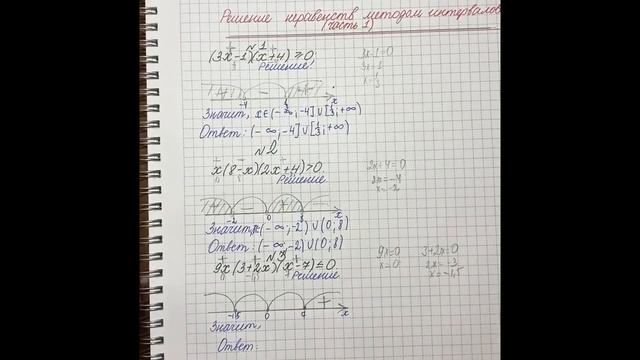 Решение неравенств методом интервалов
(часть 1)
№1
(3x-1)(x+4)≥0
Решение:
3x-1=0
3x=1
x=1/3
+ - +
-4 1/3 x
Значит, x∈(-∞;-4]∪[1/3;+∞)
Ответ: (-∞;-4]∪[1/3;+∞)
№2
x(8-x)(2x+4)>0
Решение
2x+4=0
2x=-4
x=-2
+ - + -
-2 0 8 x
Значит, x∈(-∞;-2)∪(0;8)
Ответ: (-∞;-2)∪(0;8)
№3
9x(3+2x)(x-7)≤0
Решение
9x=0
x=0
3+2x=0
2x=-3
x=-1,5
+
-1,5 0 7 x
Значит,
Ответ: